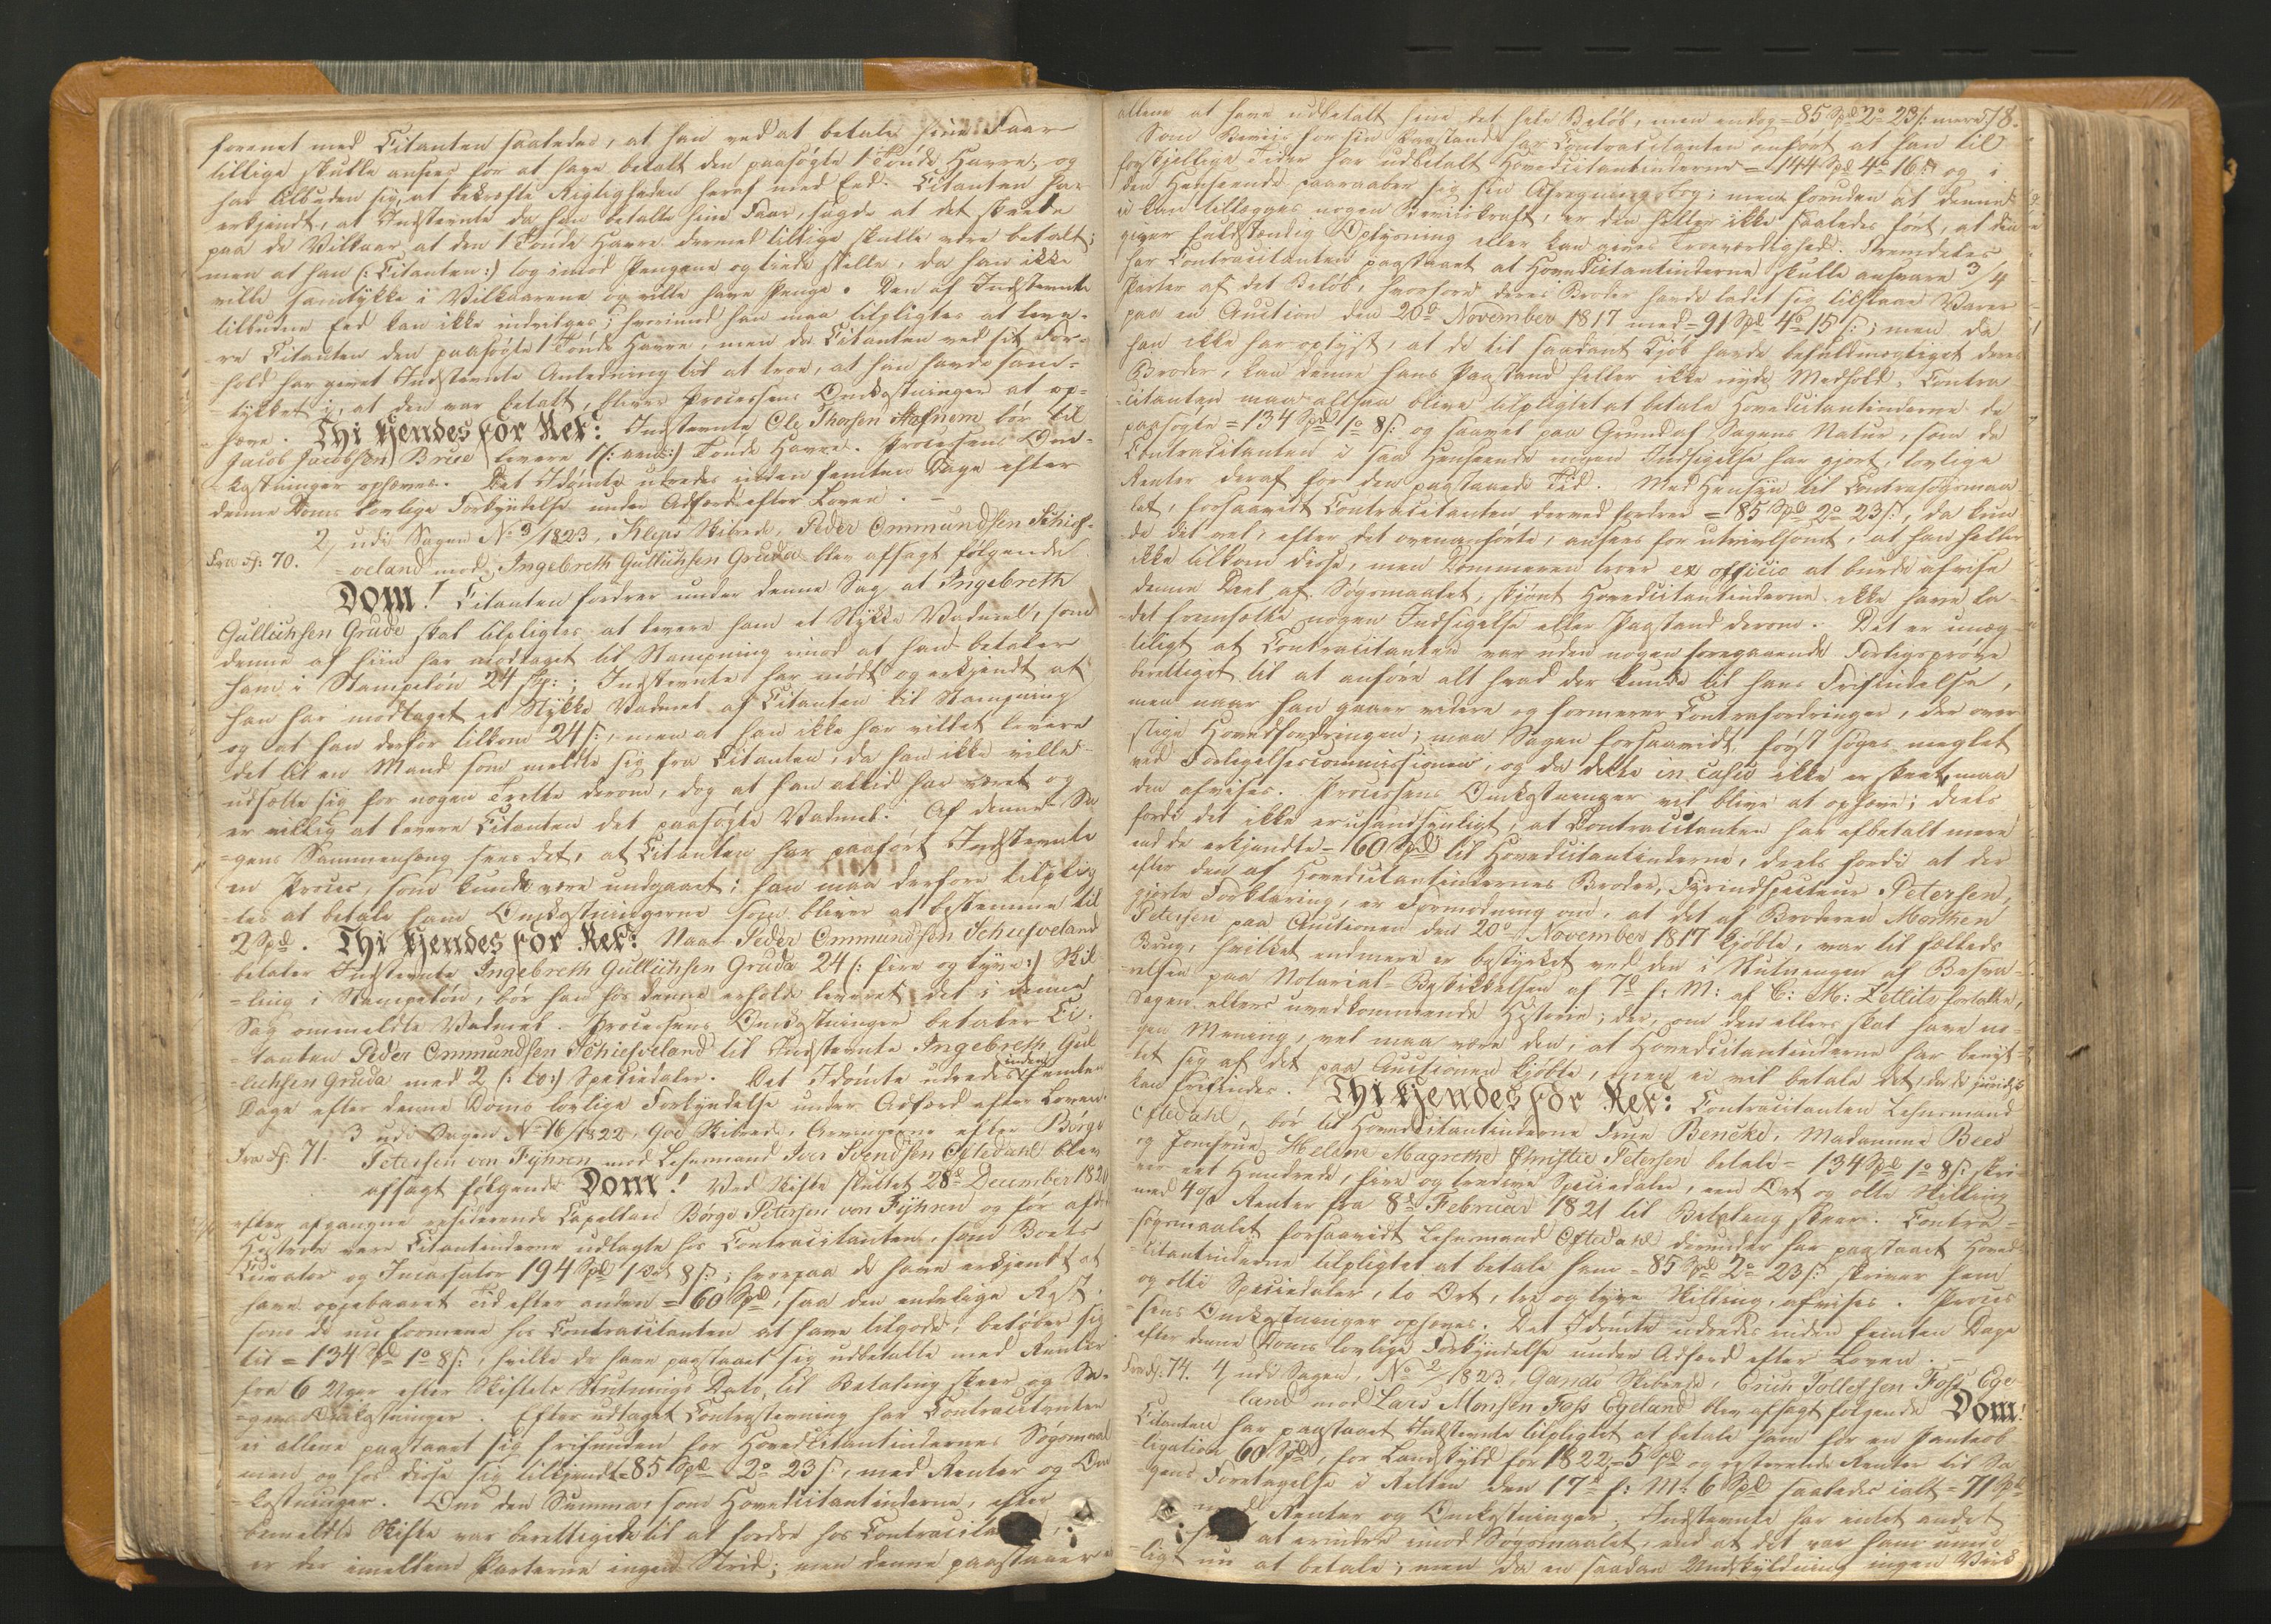 forenet med Citanten saaledes, at han ved at betale sine Faar
tillige skulde ansees for at have betalt den paasøgte 1 Tønde Havre, og
har tilbuden sig, at bekræfte Rigtigheden heraf med Eed. Citanten har
erkjendt, at Indstevnte da han betalte sine Faar, sagde at det skeede
paa de Vilkaar at den 1 Tønde Havre dermed tillige skulle være betalt;
men at han (: Citanten :) tog imod Pengene og tiede stille, da han ikke
ville samtykke i Vilkaarene og ville have Penge. Den af Indstevnte
tilbudne Eed kan ikke indvilges; hvorimod han maa tilpligtes at leve-
re Citanten den paasøgte 1 Tønde Havre, men da Citanten ved sit For-
hold har givet Indstevnte Anledning til at troe, at han havde sam-
tykket i, at den var betalt, bliver Processens Omkostninger at op-
hæve. Thi kjendes for Ret: Indstevnte Ole Thorsen bør til
Jacob Jacobsen Brue levere 1 (: een :) Tønde Havre. Processens Om-
kostninger ophæves. Det Idømte udredes inden femten Dage efter
denne Doms lovlige Forkyndelse under Adfærd efter Loven. -
2, udi Sagen No 3/1823, Kleps Skibrede, Peder Ommundsen Schief-
Fra f: 70. veland mod Ingebreth Gullichsen Gruda blev afsagt følgende
Dom! Citanten fordrer under denne Sag at Ingebreth
Gullichsen Grude skal tilpligtes at levere ham et Stykke Vadmel, som
denne af hiin har modtaget til Stampning imod at han betaler
ham i Stampeløn 24 s.; Indstevnte har mødt og erkjendt at
han har modtaget et Stykke Vadmel af Citanten til Stampning
og at han derfor tilkom 24 s:, men at han ikke har villet levere
det til en Mand som meldte sig fra Citanten, da han ikke ville
udsætte sig for nogen Trette derom, dog at han altid har været og
er villig at levere Citanten det paasøgte Vadmel. Af denne Sa
gens Sammenhæng sees det, at Citanten har paaført Indstevnte
en Proces, som kunde være undgaaet; han maa derfore tilplig
tes at betale ham Omkostningerne som bliver at bestemme til
2 Spd. Thi kjendes for Ret: Naar Peder Ommundsen Schiefveland
betaler Indstevnte Ingebreth Gullichsen Gruda 24 (: fire og tyve :) Skil
ling i Stampeløn, bør han hos denne erholde leveret det i denne
Sag ommeldte Vadmel. Processens Omkostninger betaler Ci-
tanten Peder Ommundsen Schiefveland til Indstevnte Ingebreth Gul
lichsen Gruda med 2 (: to :) Speciedaler. Det Idømte udredes inden femten
Dage efter denne Doms lovlige Forkyndelse under Adfærd efter Loven.
3 udi Sagen No 16/1822, Goe Skibrede, Arvingerne efter Børge
Fra f: 71. Petersen von Fyhren mod Lehnsmand Iver Svendsen Oftedahl blev
afsagt følgende Dom! Ved Skifte sluttet 28de December 1820
efter afgangne residerende Capellan Børge Petersen von Fyhren og før afdø
Hustroe vare Citantinderne udlagte hos Contracitanten, som Boets
Curator og Incassator 194 Spd 1 Ort 8 s:; hvorpaa de have erkjendt at
have oppebaaret Tid efter anden = 60 Spd, saa den endelige Rest,
som de nu formene hos Contracitanten at have tilgode, beløber sig
til = 134 Spd 1o 8 s:, hvilke de have paastaaet sig udbetalte med Renter
fra 6 Uger efter Skiftets Slutnings Dato, til Betaling skeer og Sa-
gens Omkostninger. Efter udtaget Contrastevning har Contracitanten
ei allene paastaaet sig frifunden for Hovedcitantindernes Søgsmaal
men og hos disse sig tilkjendt = 85 Spd 2o 23 s:, med Renter og Om
kostninger. Om den Summa, som Hovedcitantinderne, efter
bemeldte Skifte var berettigede til at fordre hos Contracita
er der imellem Parterne ingen Strid; men denne paastaaer ei
allene at have udbetalt sine det hele Beløb, men endog = 85 Spd 2o 23 s: mere. 78.
Som Beviis for sin Paastand har Contracitanten anført at han til
forskjellige Tider har udbetalt Hovedcitantinderne = 144 Spd 4o 16 s: og i
den Henseende paaraaber sig sin Afregningsbog; men foruden at denne
ei kan tillægges nogen Beviiskraft, er den heller ikke saaledes ført, at den
giver fuldstændig Oplysning eller kan gives Troeværdighed. Fremdeles
har Contracitanten paastaaet at Hovedcitantinderne skulle ansvare 3/4
Parter af det Beløb, hvorfore deres Broder havde ladet sig tilslaae Varer
paa en Auction den 20de November 1817 med = 91 Spd 4o 15 s:; men da
han ikke har oplyst, at de til saadant Kjøb havde befuldmægtiget deres
Broder, kan denne hans Paastand heller ikke nyde Medhold. Contra
citanten maa altsaa blive tilpligtet at betale Hovedcitantinderne de
paasøgte = 134 Spd 1o 8 s: og saavel paa Grund af Sagens Natur, som da
Contracitanten i saa Henseende ingen Indsigelse har gjort, lovlige
Renter deraf for den paastaaede Tid. Med Hensyn til Contrasøgsmaa
let, forsaavidt Contracitanten derved fordrer = 85 Spd 2o 23 s:, da kun
de det vel, efter det ovenanførte, ansees for utvivlsomt, at han heller
ikke tilkom disse, men Dommeren troer ex officio at burde afvise
denne Deel af Søgsmaalet, skjønt Hovedcitantinderne ikke have la-
det fremsætte nogen Indsigelse eller Paastand derom. Det er unæg-
teligt at Contracitanten var uden nogen foregaaende Forligsprøve
berettiget til at anføre alt hvad der kunde til hans Frifindelse,
men naar han gaaer videre og formerer Contrafordringer, der over
stige Hovedfordringen, maa Sagen forsaavidt, først søges meglet
ved Forligelsescommissionen, og da dette in casu ikke er skeet, maa
den afvises. Processens Omkostninger vil blive at ophæve; deels
fordi det ikke er usandsynligt, at Contracitanten har afbetalt mere
end de erkjendte = 60 Spd til Hovedcitantinderne, deels fordi at der
efter den af Hovedcitantindernes Broder, Fyrindspecteur Petersen,
gjorte Forklaring, er Formodning om, at det af Broderen Morthen
Petersen paa Auctionen den 20de November 1817 kjøbte, var til fælleds
Brug, hvilket endmere er bestyrket ved den i Slutningen af Besva-
relsen paa Notarial-Beskikkelsen af 7de f: M: af C: M: Zetlitz fortalte,
Sagen ellers uvedkommende Historie; der, om den ellers skal have no-
gen Mening, vel maa være den, at Hovedcitantinderne har benyt-
tet sig af det paa Auctionen kjøbte, men ei vil betale det, da de juridisk
kan frifindes. Thi kjendes for Ret: Contracitanten Lehnsmand
Oftedahl, bør til Hovedcitantinderne Frue Bencke, Madamme Beed
og Jomfrue Helene Magrethe Christie Petersen betale = 134 Spd 1o 8 s: skri-
ver eet Hundrede, fire og tredive Speciedaler, een Ort og otte Skilling
med 4 % Renter fra 8de Februar 1821 til Betaling skeer. Contra-
søgsmaalet forsaavidt Lehnsmand Oftedahl derunder har paastaaet Hoved-
citantinderne tilpligtet at betale ham = 85 Spd 2o 23 s: skriver fem
og otti Speciedaler, to Ort, tre og tyve Skilling, afvises. Proces
sens Omkostninger ophæves. Det Idømte udredes inden femten Dage
efter denne Doms lovlige Forkyndelse under Adfærd efter Loven. -
Fra f: 74. 4, udi Sagen, No 2/1823, Gands Skibrede, Erich Tollefsen Foss Ege
land mod Lars Monsen Foss Egeland blev afsagt følgende Dom!
Citanten har paastaaet Indstevnte tilpligtet at betale ham for en Panteob
ligation 60 Spd, for Landskyld for 1822 = 5 Spd og resterende Renter til Sa
gens Foretagelse i Retten den 17de f: M: 6 Spd saaledes ialt = 71 Spd
med Renter og Omkostninger. Indstevnte har intet andet
at erindre imod Søgsmaalet, end at det var ham umu
ligt nu at betale; men da en saadan Undskyldning ingen Virk